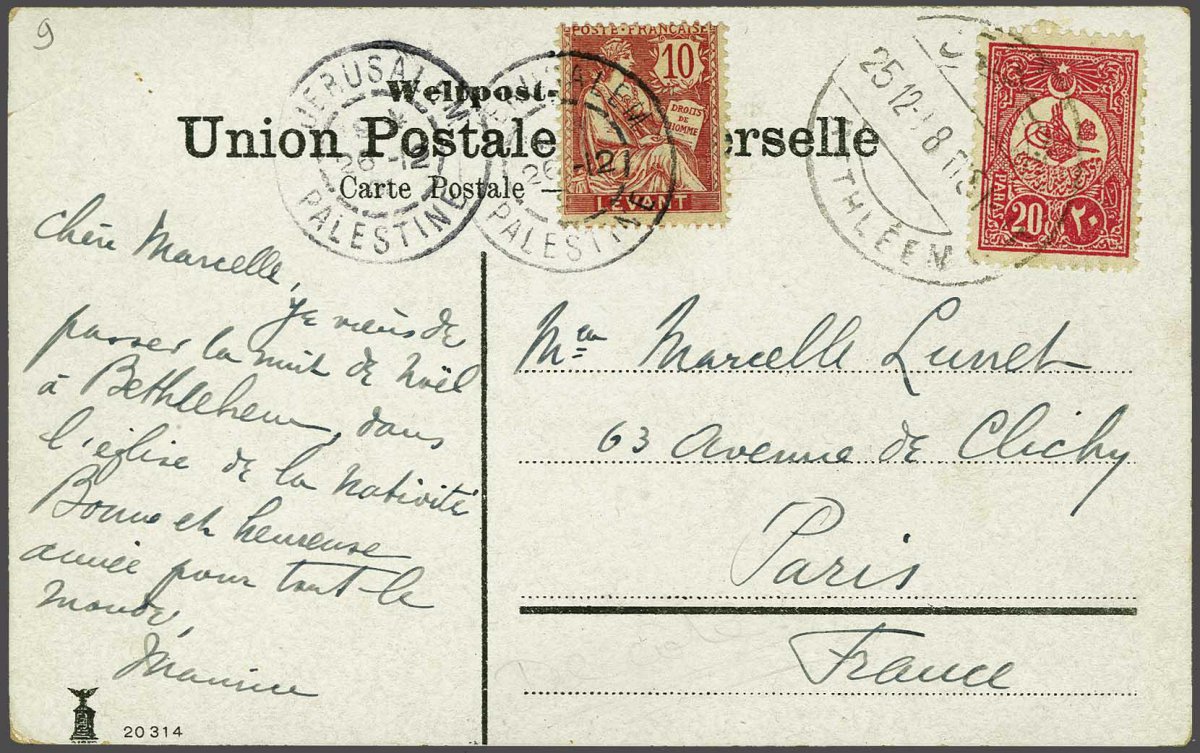 9
JERUSALEM
PALESTINE
26 -12
JERUSALEM
PALESTINE
26 -12
POSTE FRANÇAISE
10
DROITS
DE
L'HOMME
LEVANT
25 12
8
THLÉEM
PARAS
20 ٢٠
Weltpost-
Union Postale erselle
Carte Postale
Chère Marcelle,
Je viens de
passer la nuit de Noël
à Bethlehem, dans
l'église de la Nativité
Bonne et heureuse
année pour tout le
monde,
Maurice
Marcelle
63 Avenue de Clichy
Paris
France
20314